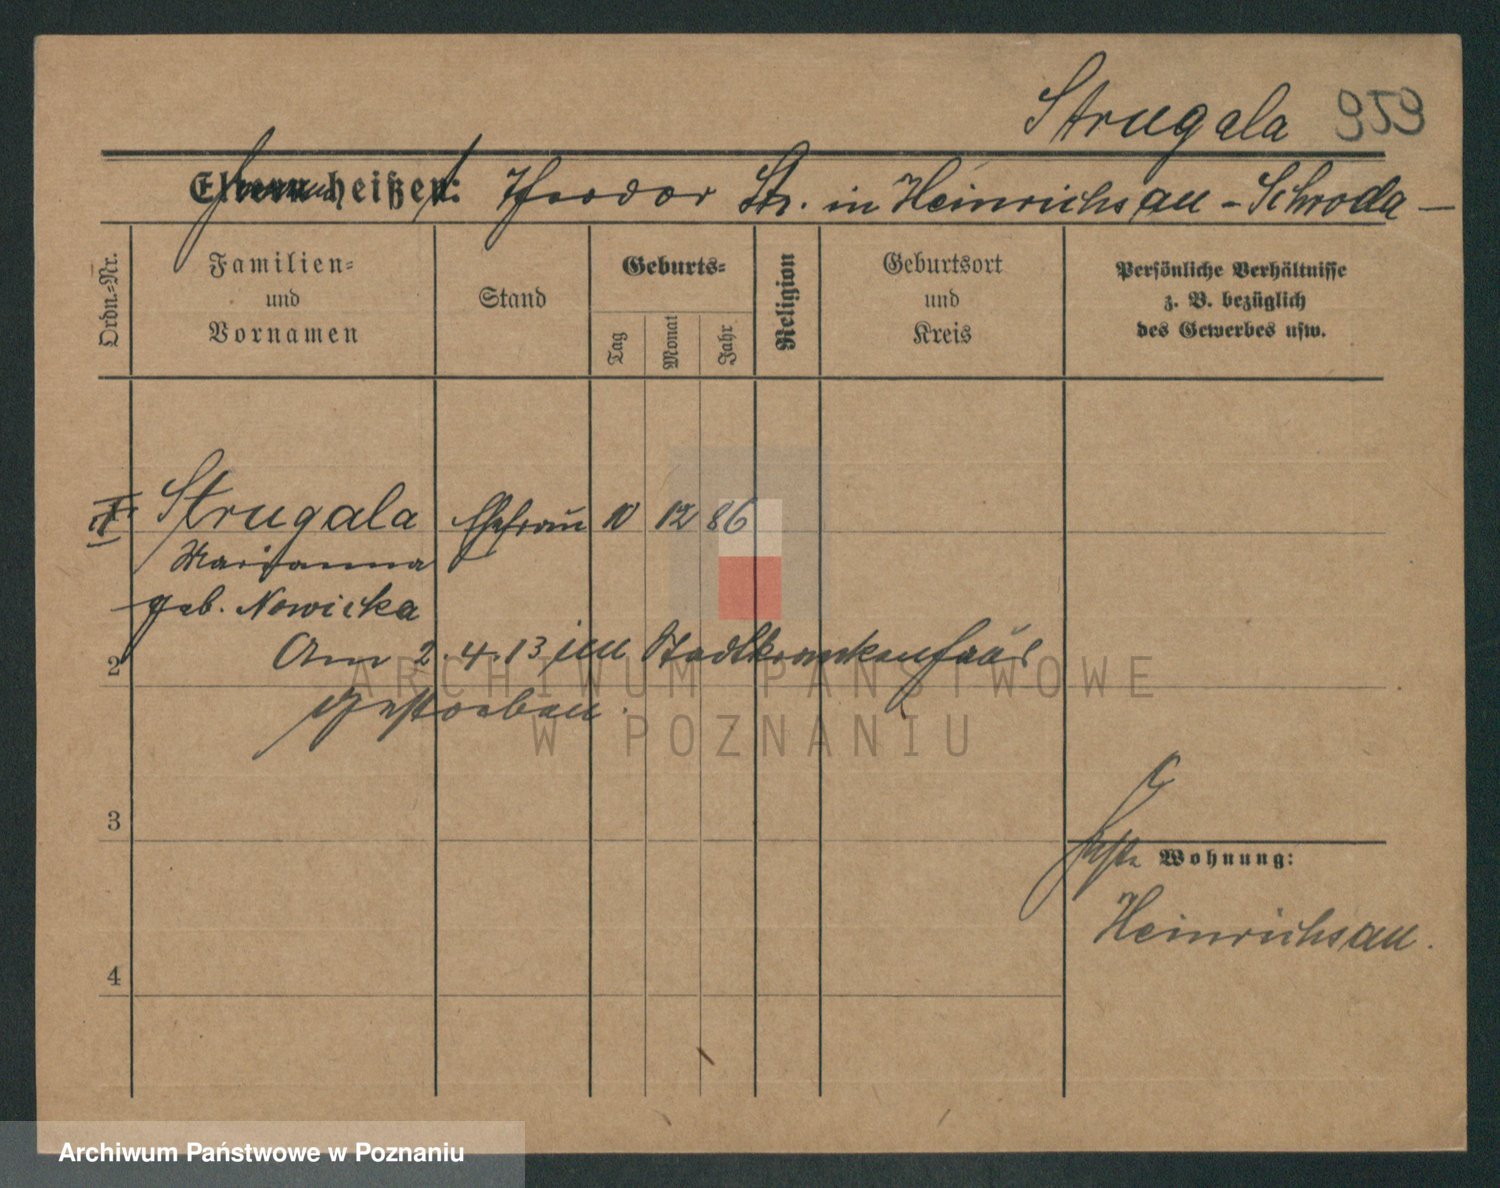 Strugala 959
Eltern heißen: Theodor Str. in Heinrichsau - Schroda -
Ordn.-Nr.
Familien- und Vornamen
Stand
Geburts-
Tag
Monat
Jahr
Religion
Geburtsort und Kreis
Persönliche Verhältnisse z. B. bezüglich des Gewerbes usw.
Strugala Ehefrau 10 12 86
Marianna
geb. Nowicka
2 Am 2.4.13 im Stadtkrankenhaus
gestorben.
3
Wohnung:
Heinrichsau.
4
ARCHIWUM PAŃSTWOWE
W POZNANIU
Archiwum Państwowe w Poznaniu